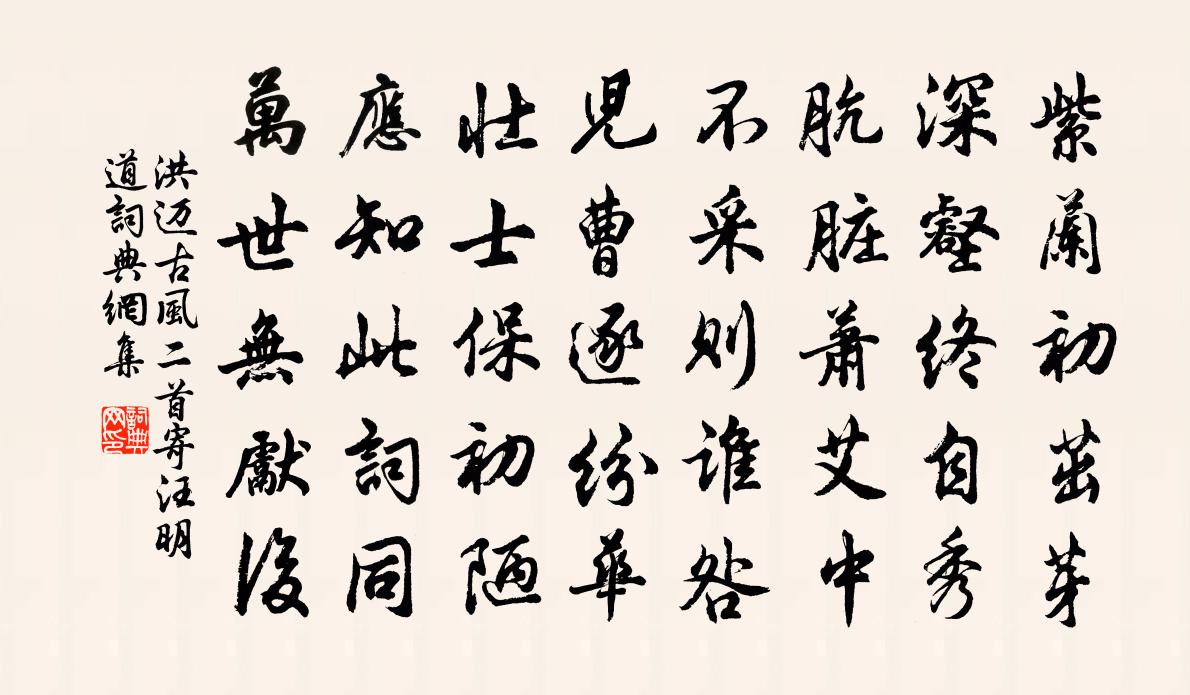 紫蘭初茁芽
深壑終自秀
肮脏蕭艾中
不采則誰咎
児曹逐紛華
壯士保初陋
應知此詞同
萬世無獻後
洪迈古風二首寄汪明
道詞典網集
詞典网印